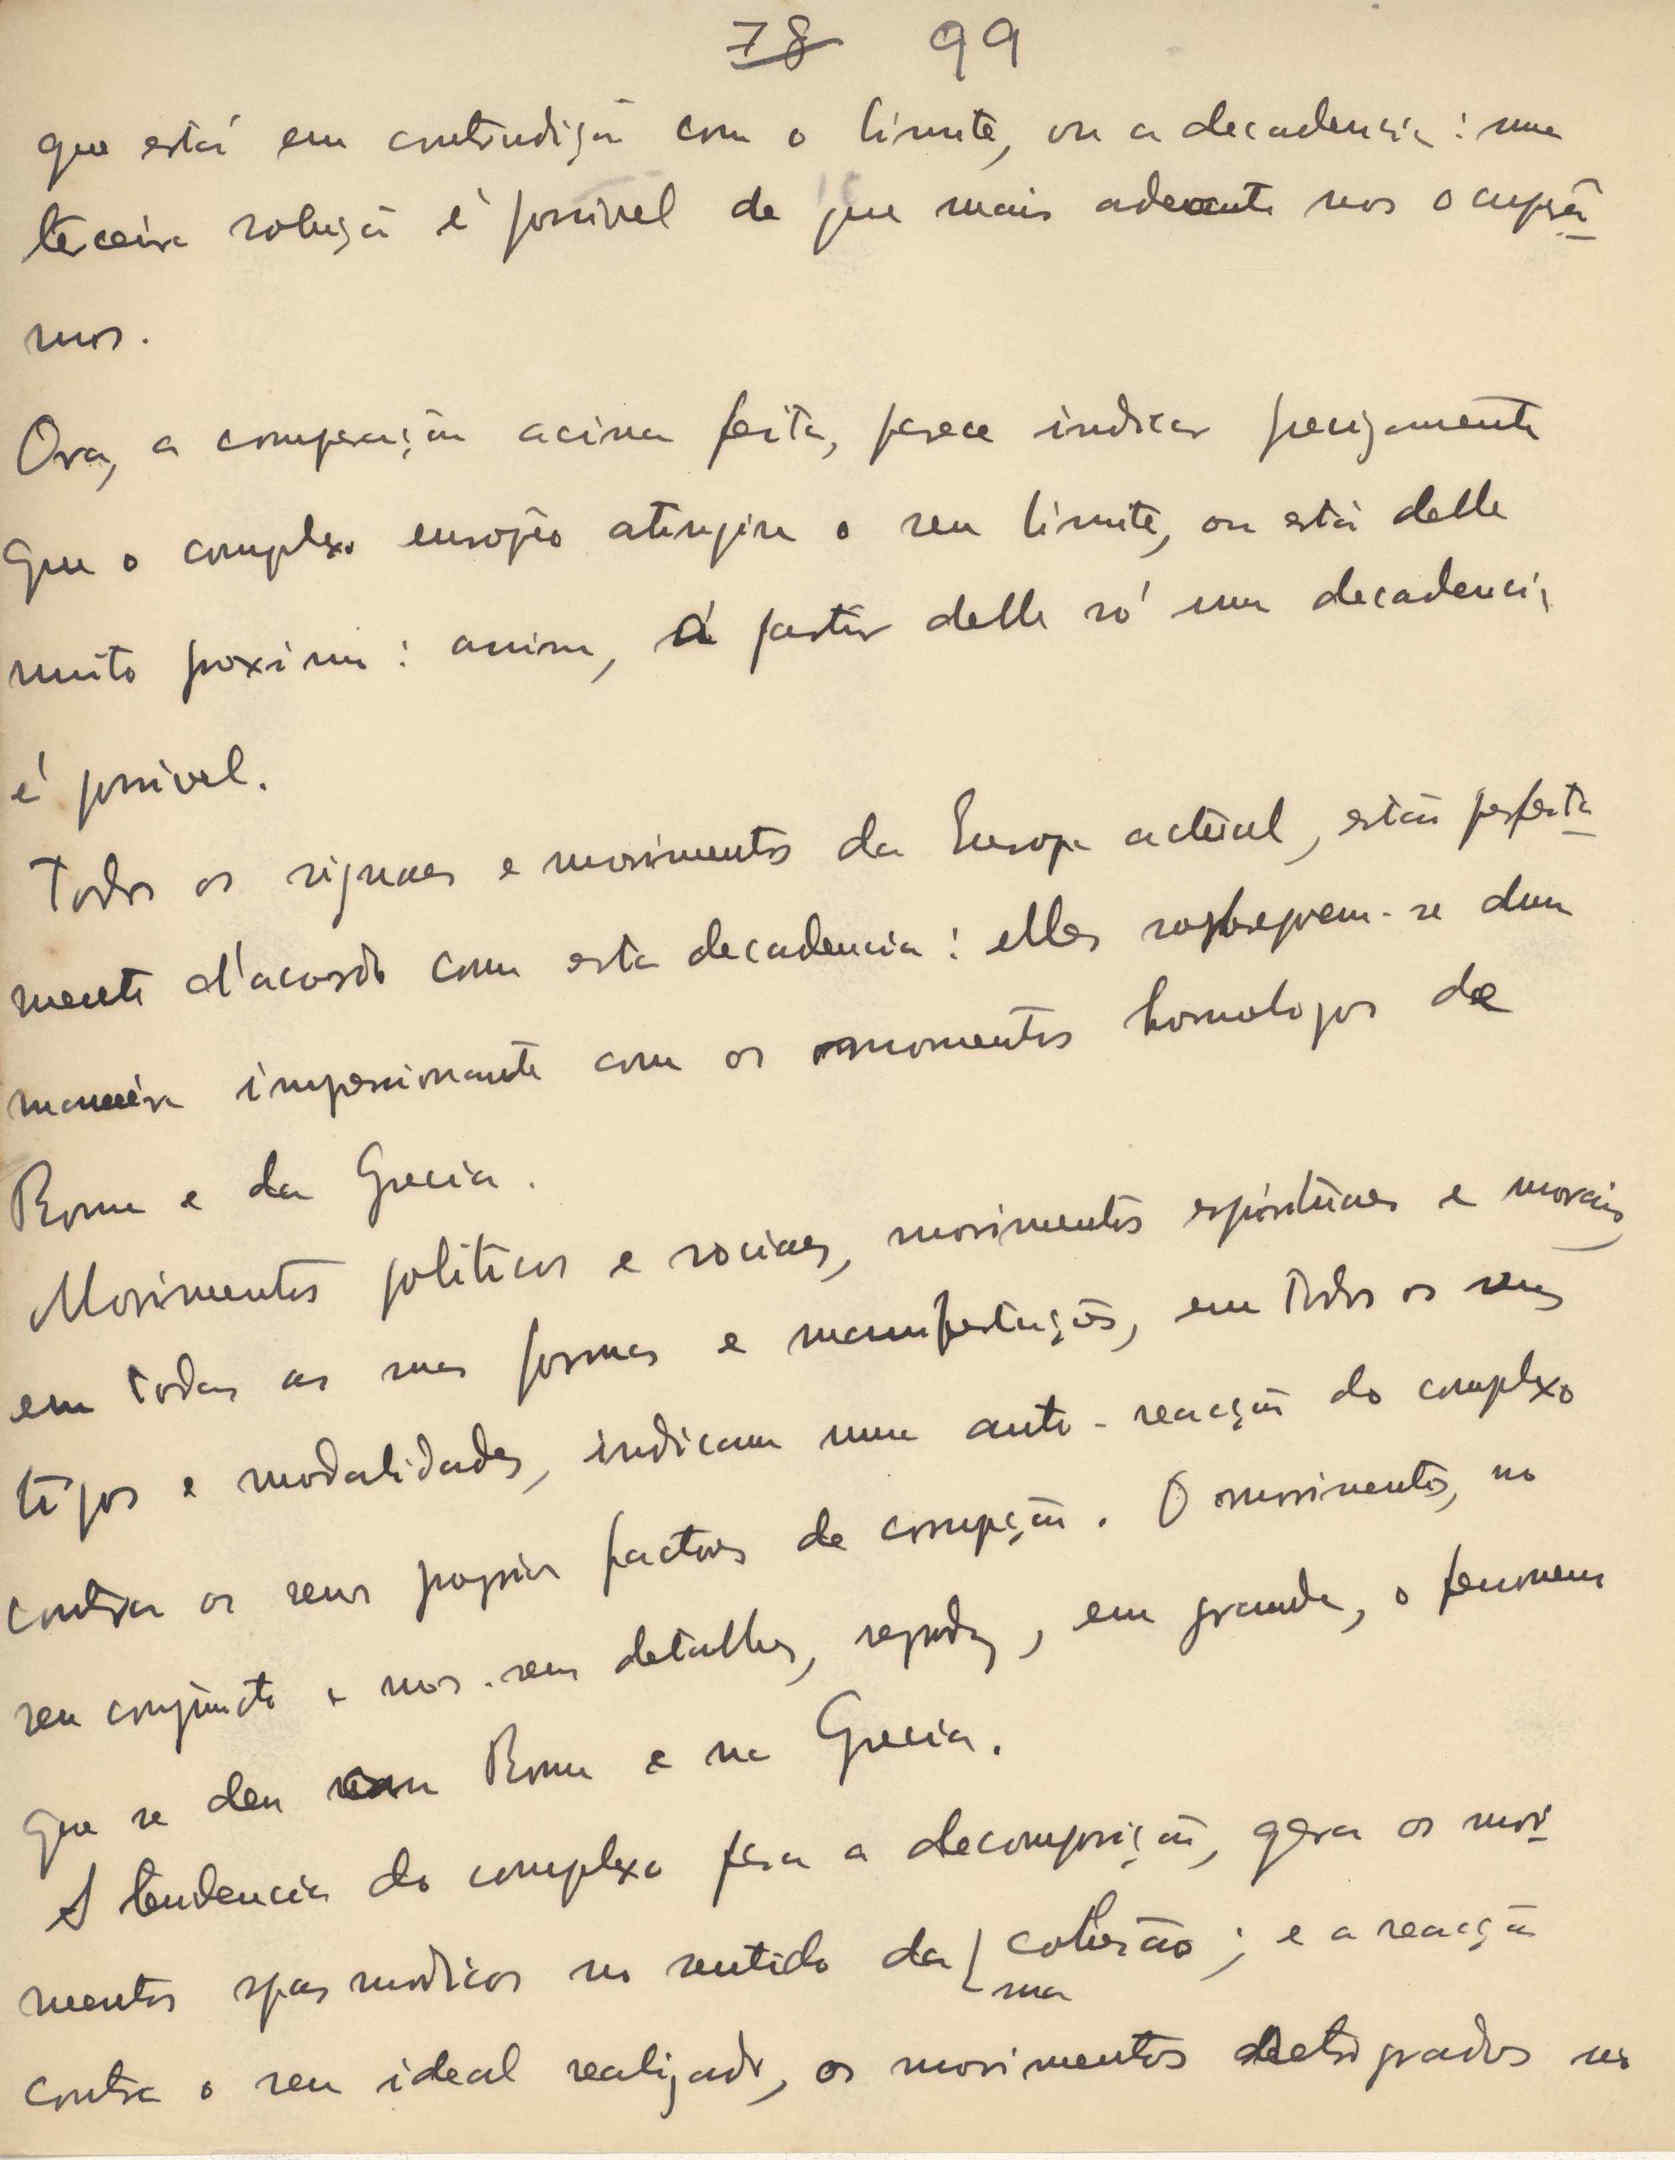 78 99
que está em contradição com o limite, ou a decadencia: uma
terceira solução é possivel de que mais adeante nos occupare-
mos.
Ora, a comparação acima feita, parece indicar precizamente
que o complexo europeo atingira o seu limite, ou está delle
muito proximo: assim, á partir delle só uma decadencia
é possivel.
Todos os signaes e movimentos da Europa actual, estão perfeita-
mente d'acordo com esta decadencia: elles sobrepoem-se duma
maneira impressionante com os momentos homologos de
Roma e da Grecia.
Movimentos politicos e sociaes, movimentos espirituaes e moraes,
em todas as suas formas e manifestações, em todos os seus
tipos e modalidades, indicam uma auto-reacção do complexo
contra os seus proprios factores de corrupção. O movimento, no
seu conjuncto e nos seus detalhes, reproduz, em grande, o fenomeno
que se deu em Roma e na Grecia.
A tendencia do complexo para a decomposição, gera os movi-
mentos espasmodicos no sentido da cohesão; e a reacção
sua
contra o seu ideal realizado, os movimentos retrogrados no